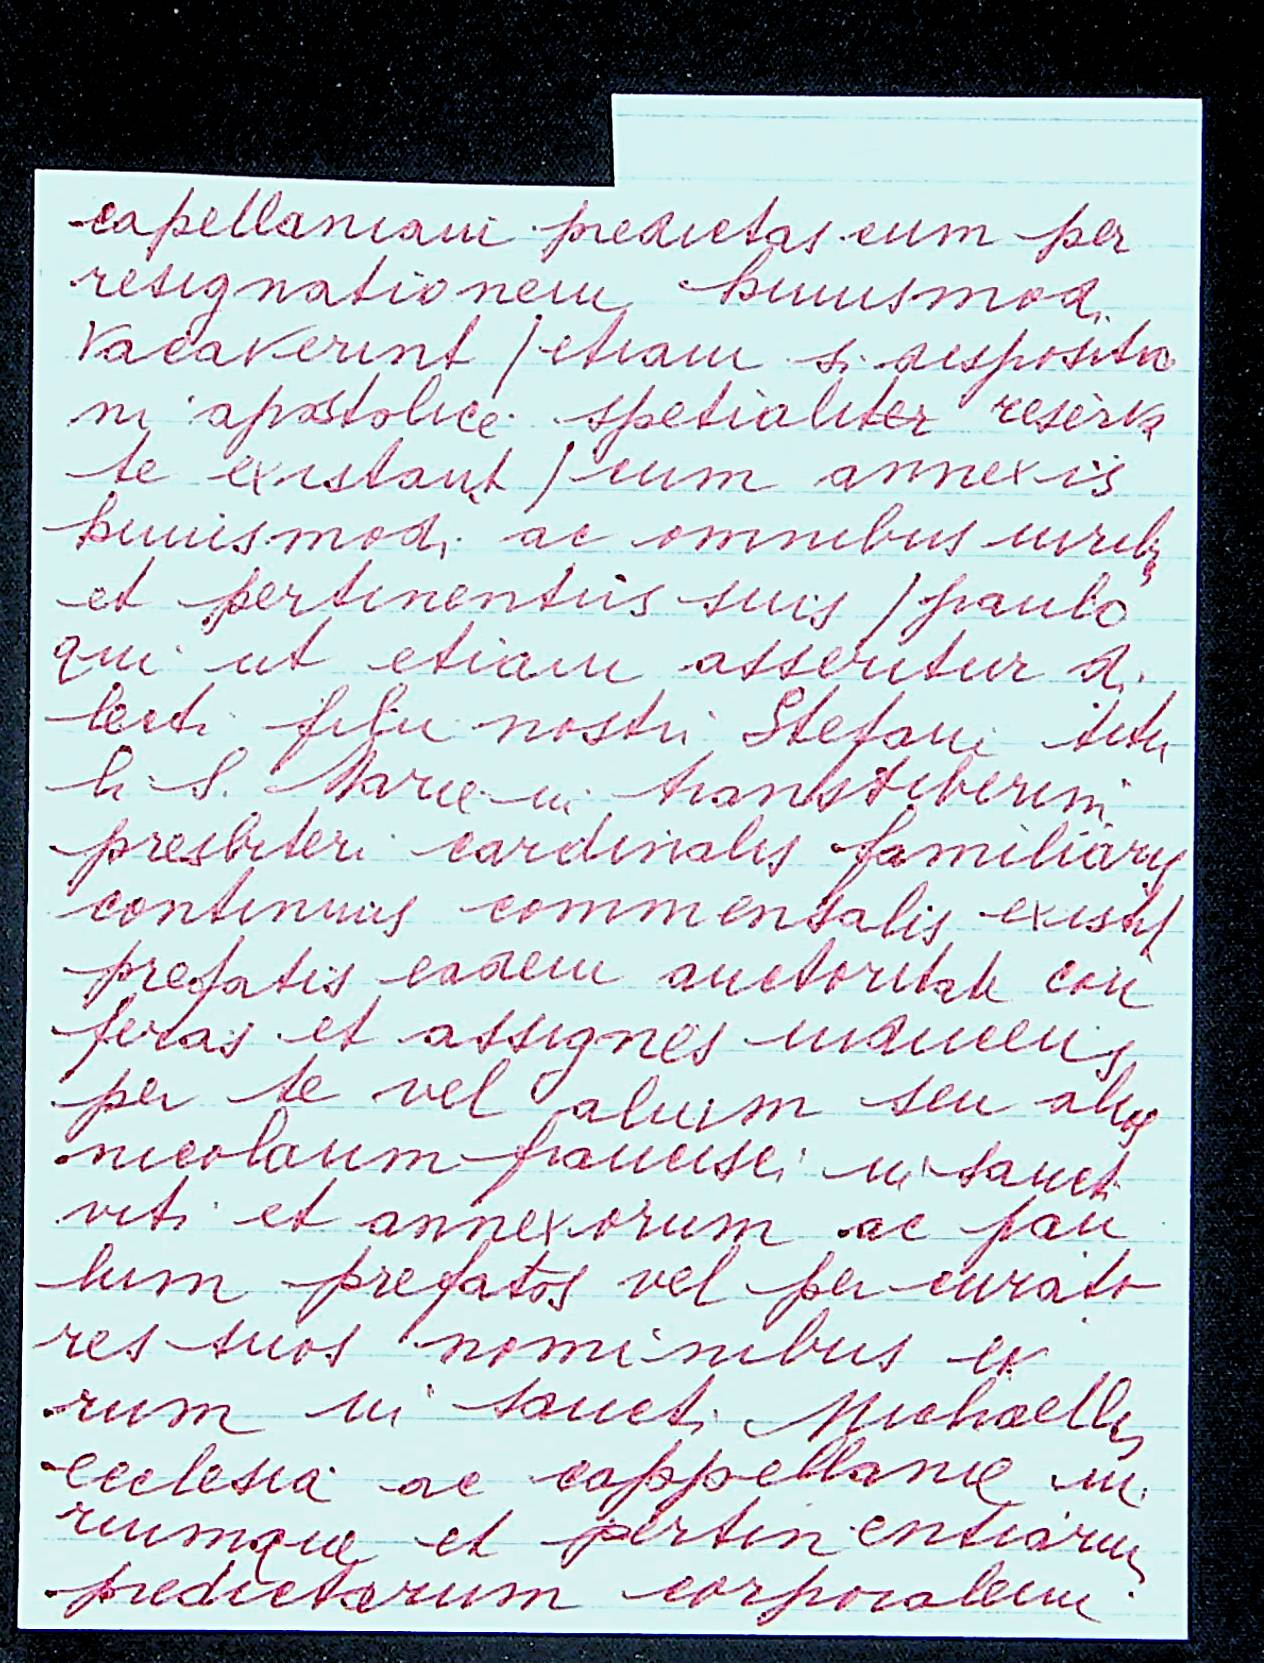 capellaniam predictas cum per
resignationem huiusmodi
vacaverint / etiam si dispositio
ni apostolice spetialiter reserva
te existant / cum annexis
huiusmodi ac omnibus iurib;
et pertinentiis suis / paulo
qui ut etiam asseritur di
lecti filii nostri Stefani titu
li S. Marie in transtiberim
presbiteri cardinalis familiaris
continuus commensalis
prefatis eadem auctoritate con
feras et assignes inducens
per te vel alium seu alios
nicolaum francisci in sancti
viti et annexorum ac pau
lum prefatos vel pcuratores
res suos nominibus eo
rum in sancti Michaelis
ecclesia ac cappellanie iu
riumque et pertinentiarum
predictarum corporalem